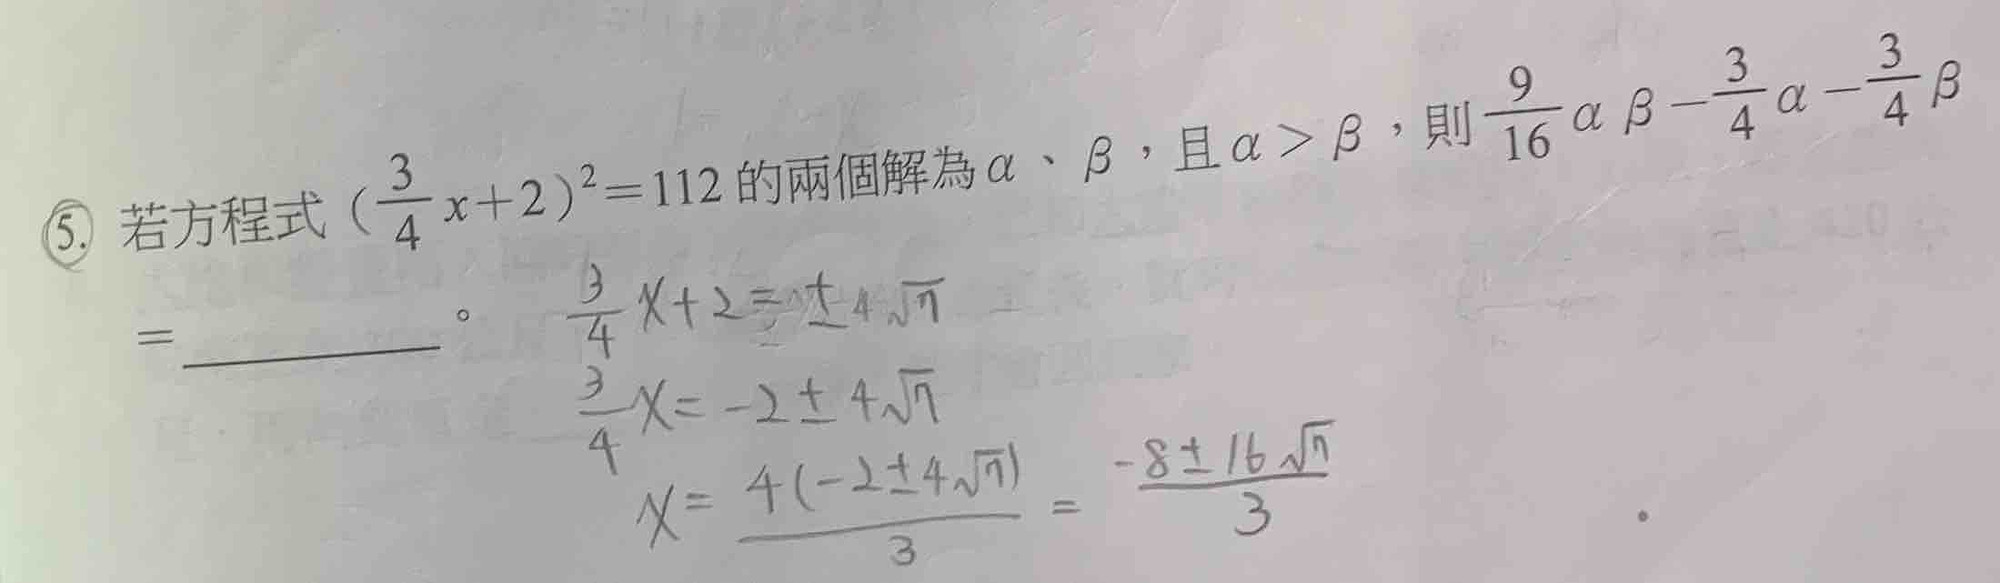 ⑤. 若方程式（3/4 x+2）²=112 的兩個解為 α、β，且 α > β，則 9/16 α β − 3/4 α − 3/4 β
= ________。
3/4 x+2 = ±4√7
3/4 x = -2 ± 4√7
x = 4(-2±4√7)/3 = -8±16√7/3